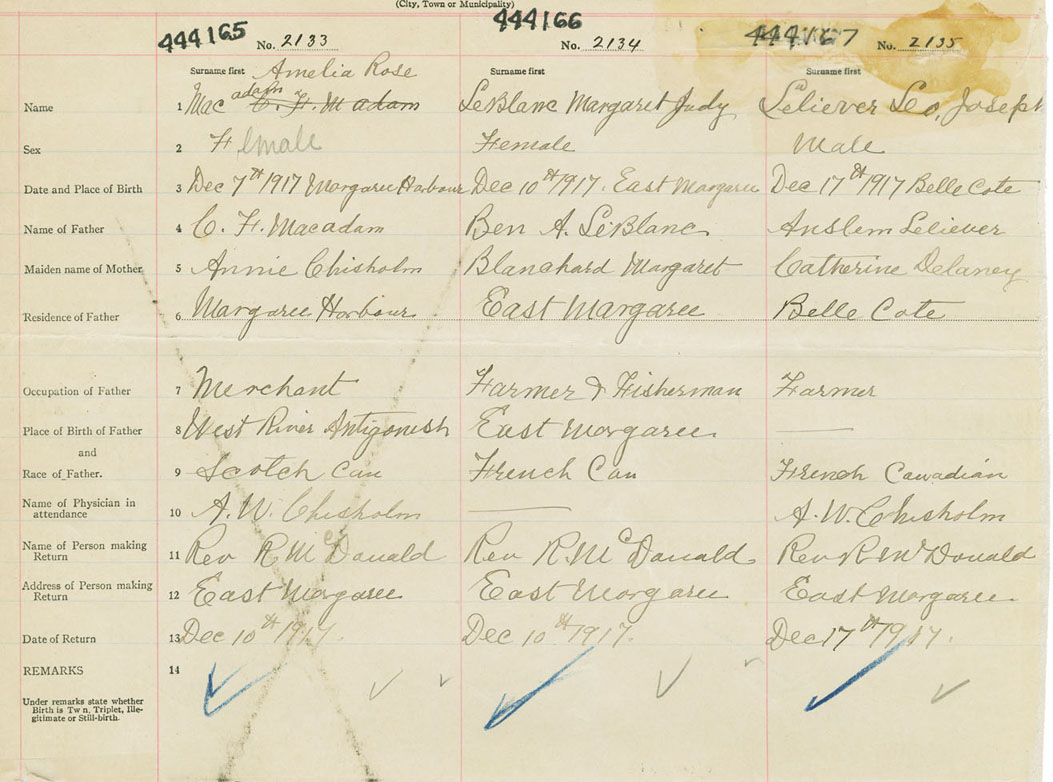 (City, Town or Municipality)
444165 444166 444167
No. 2133 No. 2134 No. 2135
Surname first Amelia Rose Surname first Surname first
Name 1 Mac adam C. F. Macadam LeBlanc Margaret Judy Leliever Leo, Joseph
Sex 2 Female Female Male
Date and Place of Birth 3 Dec 7th 1917 Margaree Harbour Dec 10th 1917. East Margaree Dec 17th 1917 Belle Cote
Name of Father 4 C. F. Macadam Ben A. LeBlanc Anslem Leliever
Maiden name of Mother 5 Annie Chisholm Blanchard Margaret Catherine Delaney
Residence of Father 6 Margaree Harbour East Margaree Belle Cote
Occupation of Father 7 Merchant Farmer & Fisherman Farmer
Place of Birth of Father 8 West River Antigonish East Margaree
and
Race of Father. 9 Scotch Can French Can French Canadian
Name of Physician in
attendance 10 A. W. Chisholm A. W. Chisholm
Name of Person making
Return 11 Rev R McDonald Rev R McDonald Rev R McDonald
Address of Person making
Return 12 East Margaree East Margaree East Margaree
Date of Return 13 Dec 10th 1917. Dec 10th 1917. Dec 17th 1917.
REMARKS 14
Under remarks state whether
Birth is Tw n, Triplet, Ille-
gitimate or Still-birth.